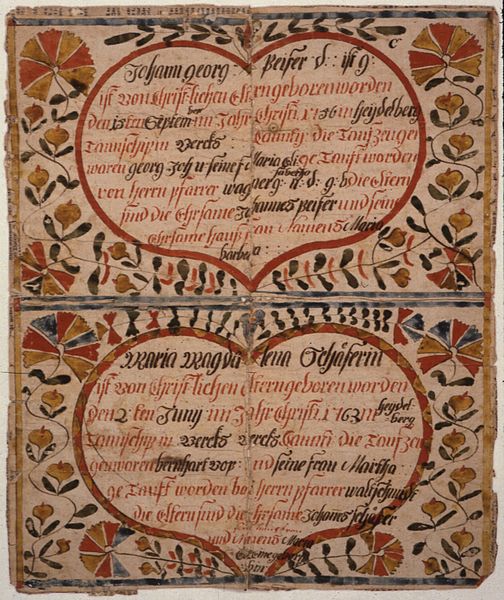 Johann georg Reiser d: ist g:
ist von Christlichen Eltern geboren worden
den 15ten September im Jahr Christi 1736 in heydelberg
Taunschip in Vercks County die Taufzeugen
waren georg Joh u seine f Maria Elisabetha ge Tauft worden
von herrn pfarrer wagner g: n: d: g: b die Eltern
sind die Ehrsame Johannes Reiser und seine
Ehrsame hausfrau Namens Maria
barbara
Maria Magdalena Schäferin
ist von Christlichen Eltern geboren worden
den 2ten Juny im Jahr Christi 1763 in heydelberg
Taunschip in Vercks Vercks Caunti die Taufzeu
gen woren bernhart und seine frau Martha
ge Tauft worden bo herrn pfarrer
die Eltern sind die Ehrsame Johannes schäfer
und Namens Maria